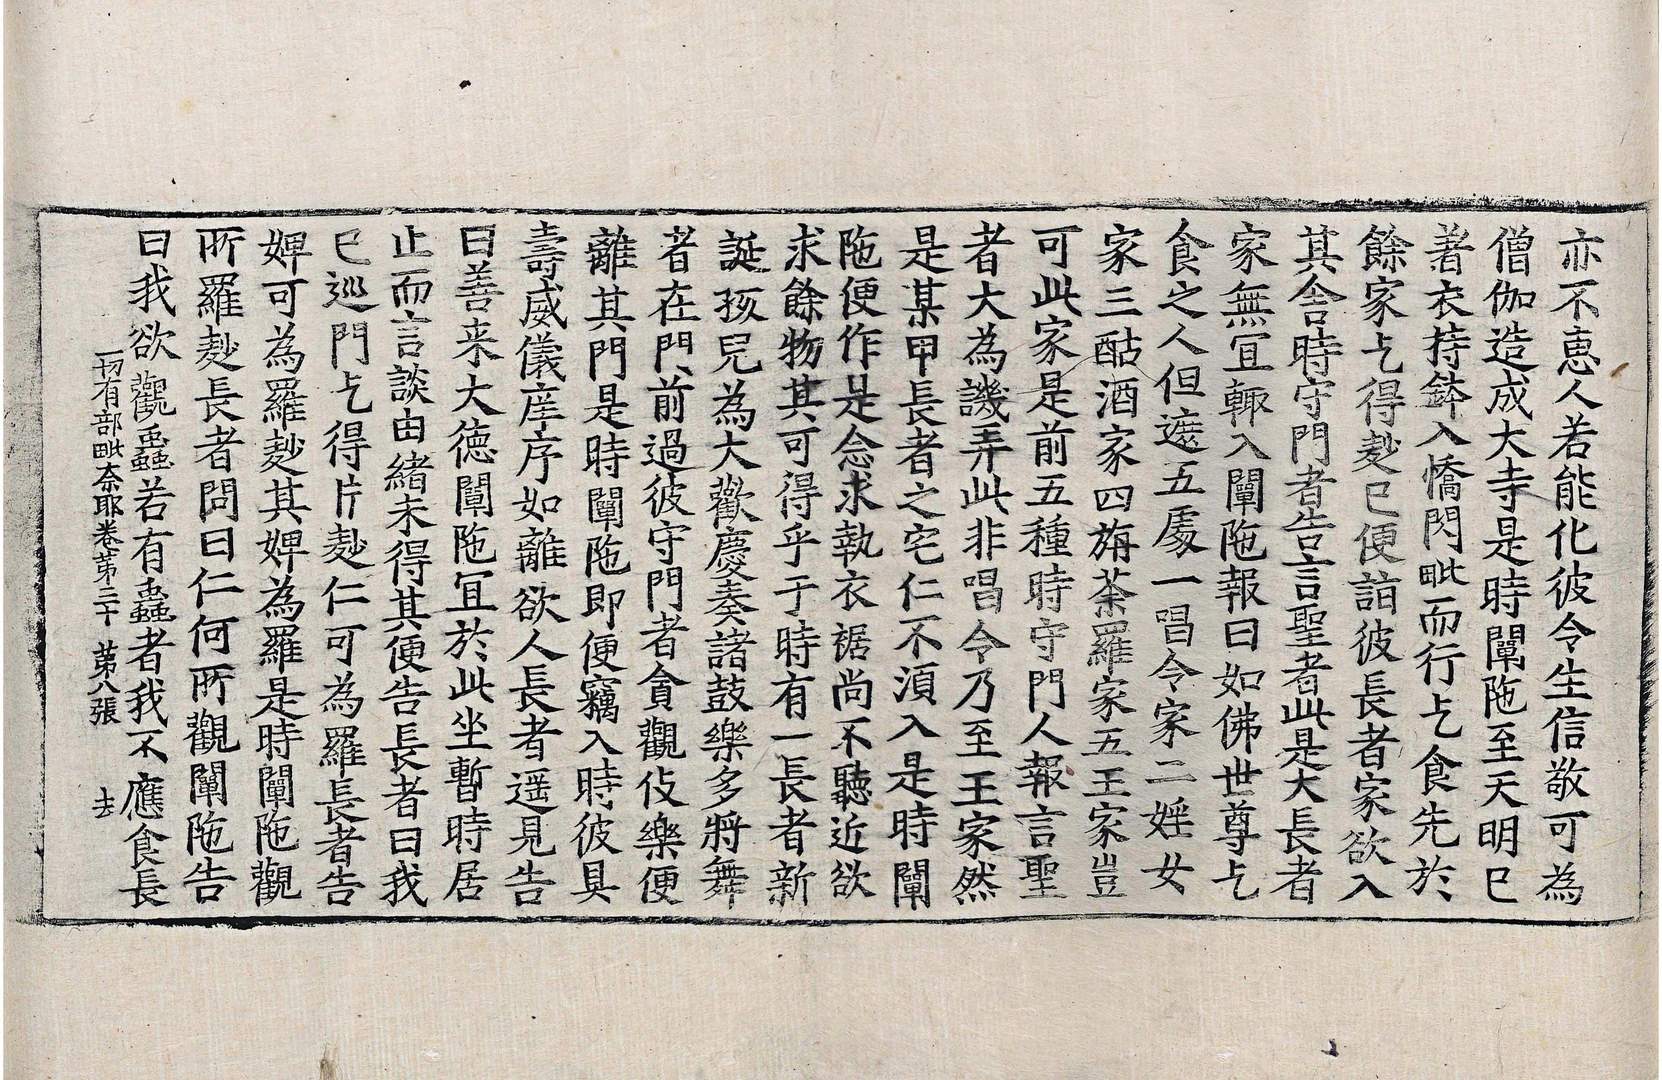 亦不恵人若能化彼令生信敬可為
僧伽造成大寺是時闡陁至天明已
著衣持鉢入憍閃毗而行乞食先於
餘家乞得麨已便詣彼長者家欲入
其舎時守門者告言聖者此是大長者
家無宜輙入闡陁報曰如佛世尊乞
食之人但遮五處一唱令家二婬女
家三酤酒家四旃荼羅家五王家豈
可此家是前五種時守門人報言聖
者大為譏弄此非唱令乃至王家然
是某甲長者之宅仁不湏入是時闡
陁便作是念求執衣裾尚不聽近欲
求餘物其可得乎于時有一長者新
誕孩兒為大歡慶奏諸鼓樂多將舞
者在門前過彼守門者貪觀伎樂便
離其門是時闡陁即便竊入時彼具
壽威儀庠序如離欲人長者遥見告
曰善来大德闡陁宜於此坐暫時居
止而言談由緒未得其便告長者曰我
已巡門乞得片麨仁可為羅長者告
婢可為羅麨其婢為羅是時闡陁觀
所羅麨長者問曰仁何所觀闡陁告
曰我欲觀蟲若有蟲者我不應食長
一切有部毗奈耶卷第三十 第八張 去